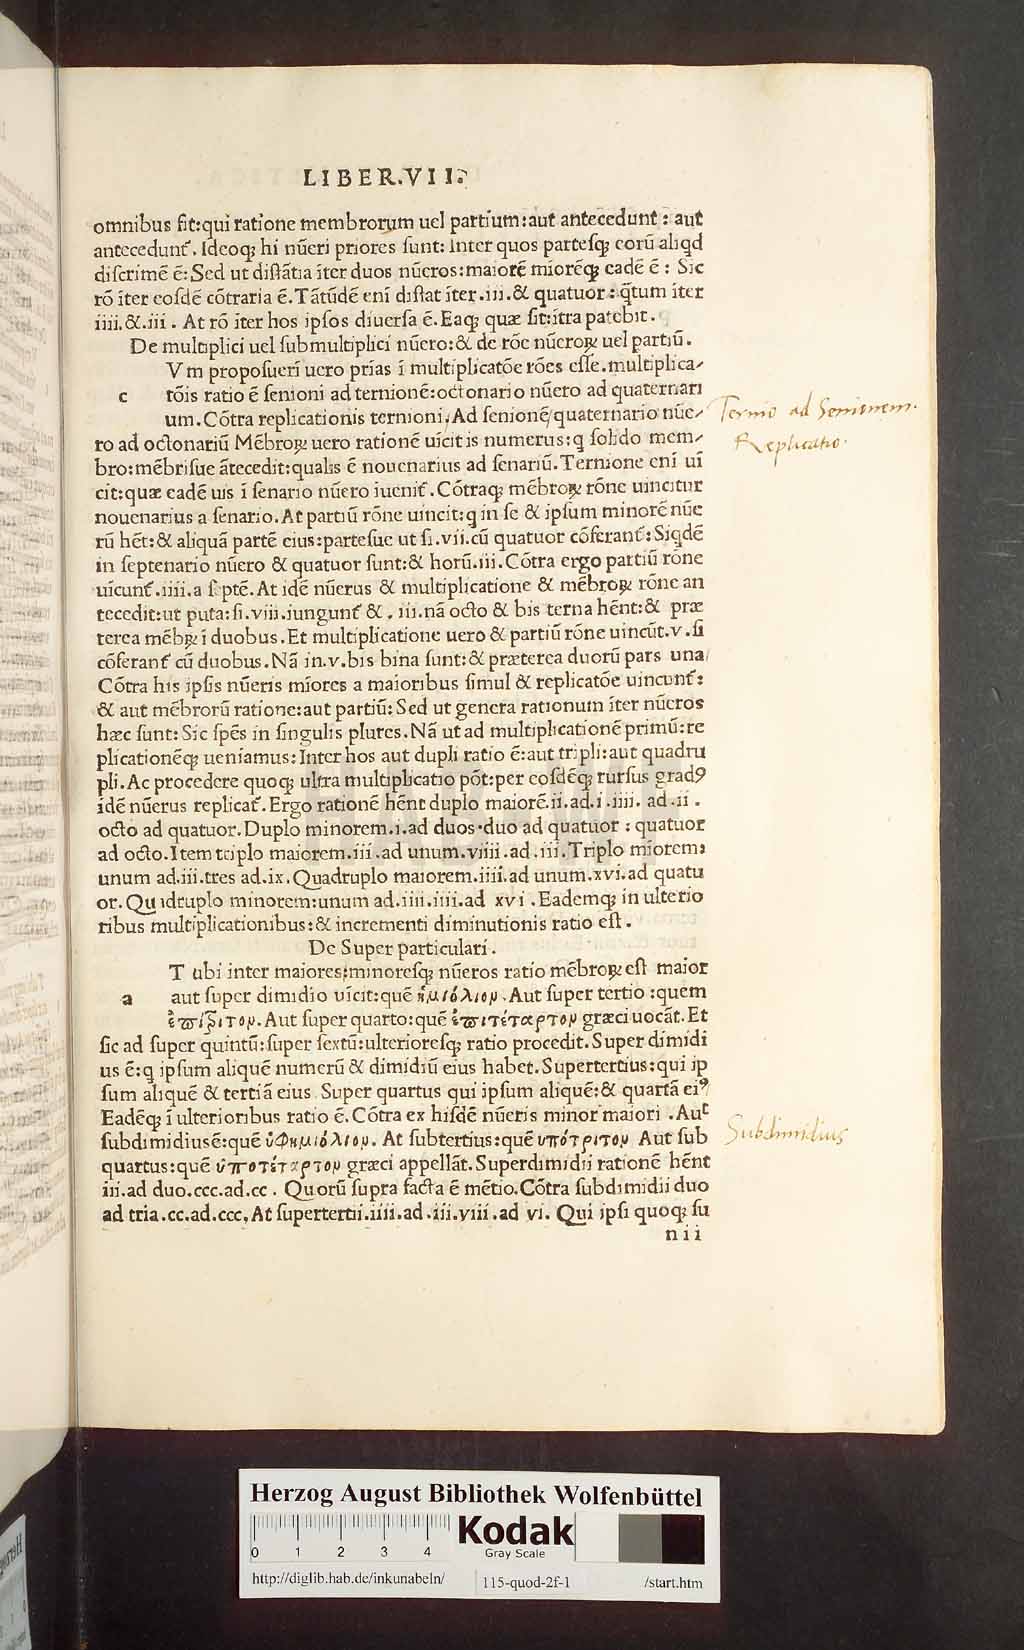 LIBER.VII.
omnibus fit:qui ratione membrorum uel partium:aut antecedunt: aut
antecedunt᷑. Ideoqꝫ hi nūeri priores sunt: Inter quos partesqꝫ eorū aliqd
discrimē ē: Sed ut distātia īter duos nūeros:maiorē mīorēqꝫ eadē ē: Sic
rō īter eosdē cōtraria ē. Tātūdē eni distat īter.iii.& quatuor: q̄tum iter
iiii.&.iii. At rō īter hos ipsos diuersa ē. Eaqꝫ quæ sit:ītra patebit.
De multiplici uel submultiplici nūero:& de rōe nūeroꝝ uel partiū.
Vm proposueri uero prīas ī multiplicatōe rōes esse. multiplica-
c tōis ratio ē senioni ad ternionē:octonario nūero ad quaternari
um. Cōtra replicationis ternioni, Ad senionē/quaternario nūe-
ro ad octonariū Mēbroꝝ uero rationē uicit is numerus:q solido mem-
bro:mēbrisue ātecedit:qualis ē nouenarius ad senariū. Ternione eni ui
cit:quæ eadē uis ī senario nūero iuenit᷑. Cōtraqꝫ mēbroꝝ rōne uincitur
nouenarius a senario. At partiū rōne uincit:q in se & ipsum minorē nūe
rū hēt:& aliquā partē eius:partesue ut si.vii.cū quatuor cōferant᷑: Siqdē
in septenario nūero & quatuor sunt:& horū.iii. Cōtra ergo partiū rōne
uicunt᷑.iiii.a septē. At idē nūerus & multiplicatione & mēbroꝝ rōne an
tecedit:ut puta:si.viii.iungunt᷑ &. iii.nā octo & bis terna hēnt:& præ
terea mēbꝝ ī duobus. Et multiplicatione uero & partiū rōne uincūt.v.si
cōferant᷑ cū duobus. Nā in.v.bis bina sunt:& præterea duorū pars una
Cōtra his ipsis nūeris mīores a maioribus simul & replicatōe uincunt᷑:
& aut mēbrorū ratione:aut partiū: Sed ut genera rationum īter nūeros
hæc sunt: Sic spēs in singulis plures. Nā ut ad multiplicationē primū:re
plicationēqꝫ ueniamus: Inter hos aut dupli ratio ē:aut tripli:aut quadru
pli. Ac procedere quoqꝫ ultra multiplicatio pōt:per eosdēqꝫ rursus gradꝯ
idē nūerus replicat᷑. Ergo rationē hēnt duplo maiorē.ii.ad.i.iiii. ad.ii.
octo ad quatuor. Duplo minorem.i.ad duos.duo ad quatuor: quatuor
ad octo. Item triplo maiorem.iii.ad unum.viiii.ad.iii. Triplo mīorem:
unum ad.iii.tres ad.ix. Quadruplo maiorem.iiii.ad unum.xvi.ad quatu
or. Quadruplo minorem:unum ad.iiii.iiii.ad xvi. Eademqꝫ in ulterio
ribus multiplicationibus:& incrementi diminutionis ratio est.
De Super particulari.
T ubi inter maiores:minoresqꝫ nūeros ratio mēbroꝝ est maior
a aut super dimidio uīcit:quē ἡμιόλιον. Aut super tertio:quem
ἐπίτριτον. Aut super quarto:quē ἐπιτέταρτον græci uocāt. Et
sic ad super quintū:super sextū:ulterioresqꝫ ratio procedit. Super dimidi
us ē:q ipsum aliquē numerū & dimidiū eius habet. Supertertius:qui ip
sum aliquē & tertiā eius Super quartus qui ipsum aliquē:& quartā eiꝰ
Eadēqꝫ ī ulterioribus ratio ē. Cōtra ex hisdē nūeris minor maiori. Aut
subdimidiusē:quē ὑφημιόλιον. At subtertius:quē υπότριτον Aut sub
quartus:quē ὑποτέταρτον græci appellāt. Superdimidii rationē hēnt
iii.ad duo.ccc.ad.cc. Quorū supra facta ē mētio. Cōtra subdimidii duo
ad tria.cc.ad.ccc, At supertertii.iiii.ad.iii.viii.ad vi. Qui ipsi quoqꝫ su
nii
Ternio ad Senionem.
Replicatio.
Subdimidius
HAB WF
Herzog August Bibliothek Wolfenbüttel
0 1 2 3 4
Kodak
Gray Scale
http://diglib.hab.de/inkunabeln/ 115-quod-2f-1 /start.htm